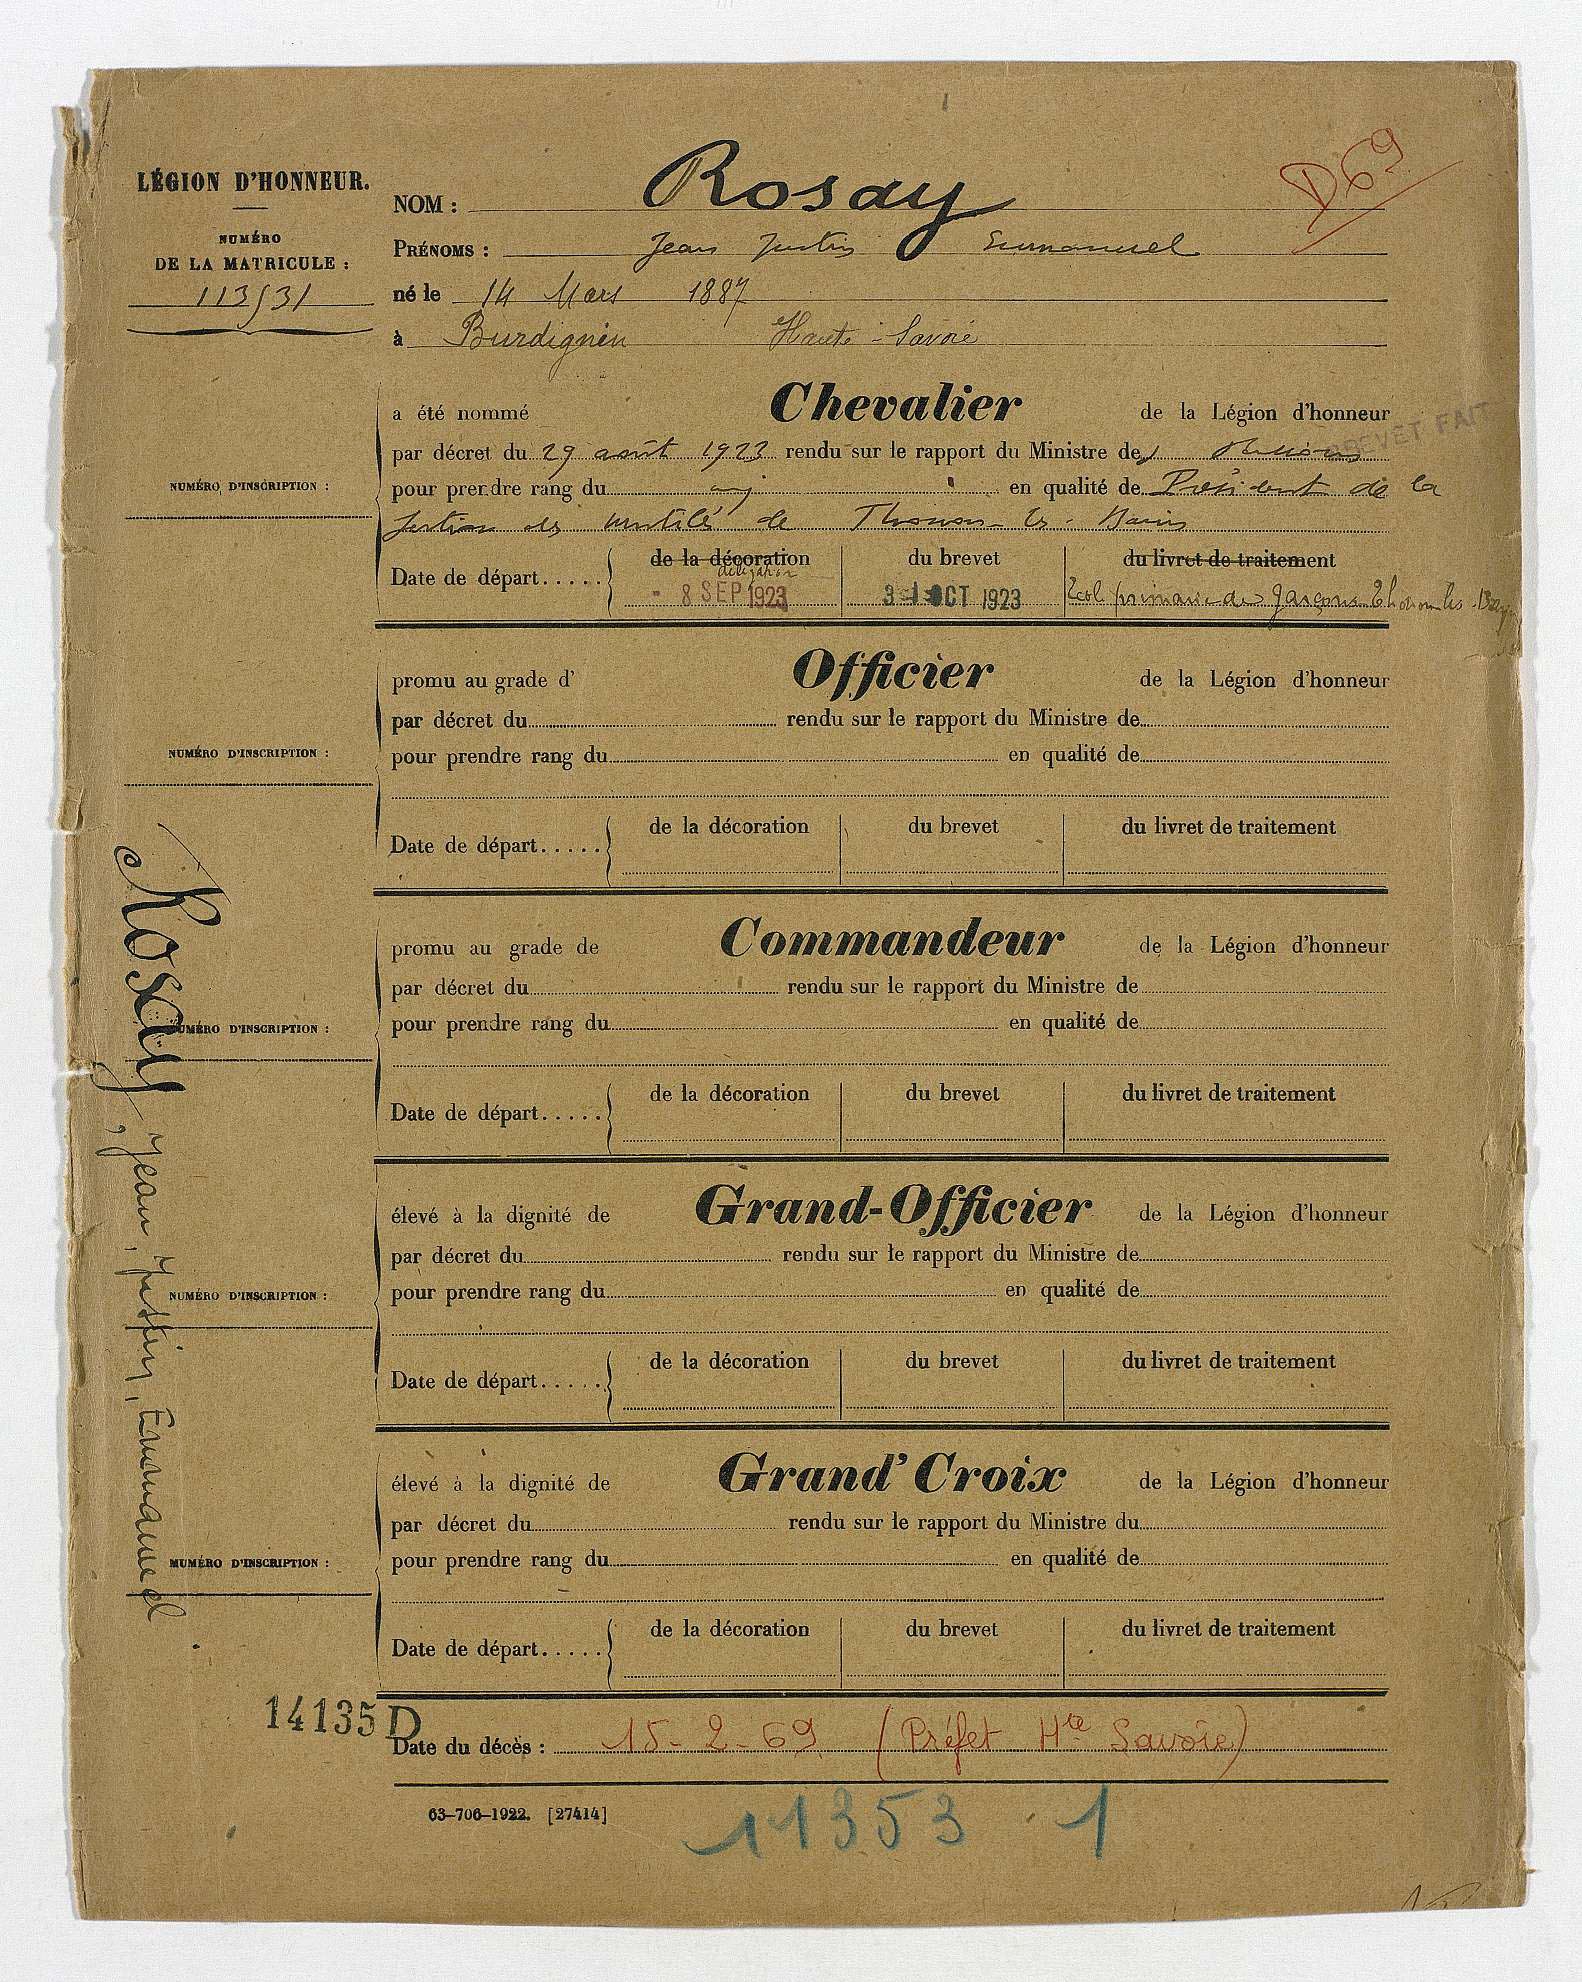 LÉGION D'HONNEUR.
NUMÉRO
DE LA MATRICULE :
113531
D69
NOM : Rosay
PRÉNOMS : Jean Justin Emmanuel
né le 14 Mars 1887
à Burdignin Haute-Savoie
a été nommé Chevalier de la Légion d'honneur
BREVET FAIT
par décret du 29 août 1923 rendu sur le rapport du Ministre des
NUMÉRO D'INSCRIPTION :
pour prendre rang du en qualité de Président de la
section des mutilés de Thonon-les-Bains
Date de départ..... de la décoration du brevet du livret de traitement
délégation
- 8 SEP 1923 31 OCT 1923 Ecole primaire de garçons Thonon les Bains
promu au grade d' Officier de la Légion d'honneur
par décret du rendu sur le rapport du Ministre de
NUMÉRO D'INSCRIPTION :
pour prendre rang du en qualité de
Date de départ..... de la décoration du brevet du livret de traitement
promu au grade de Commandeur de la Légion d'honneur
par décret du rendu sur le rapport du Ministre de
NUMÉRO D'INSCRIPTION :
pour prendre rang du en qualité de
Date de départ..... de la décoration du brevet du livret de traitement
élevé à la dignité de Grand-Officier de la Légion d'honneur
par décret du rendu sur le rapport du Ministre de
NUMÉRO D'INSCRIPTION :
pour prendre rang du en qualité de
Date de départ..... de la décoration du brevet du livret de traitement
élevé à la dignité de Grand'Croix de la Légion d'honneur
par décret du rendu sur le rapport du Ministre du
NUMÉRO D'INSCRIPTION :
pour prendre rang du en qualité de
Date de départ..... de la décoration du brevet du livret de traitement
Rosay, Jean, Justin, Emmanuel
14135 D
Date du décès : 15-2-69 (Préfet Hte Savoie)
63-706-1922. [27414]
11353 1